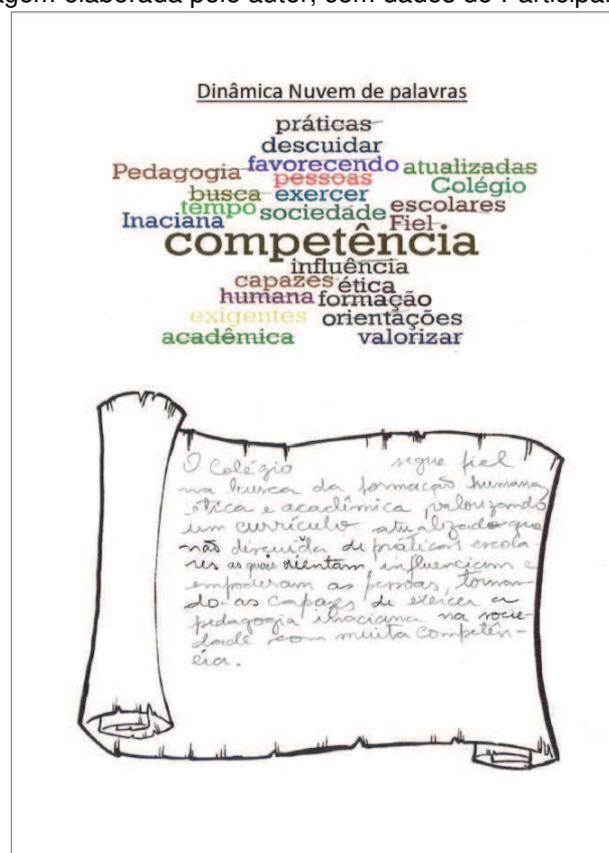 agem elaborada pelo autor, com dados do Participan
Dinâmica Nuvem de palavras
práticas
descuidar
Pedagogia favorecendo atualizadas
pessoas Colégio
busca exercer escolares
tempo sociedade Fiel
Inaciana
competência
influência
capazes ética
humana formação
exigentes orientações
acadêmica valorizar
O Colégio segue fiel
na busca da formação humana
ética e acadêmica valorizando
um currículo atualizado que
não descuida de práticas escola
res as quais orientam, influenciam e
empoderam as pessoas, tornan-
do-as capazes de exercer a
pedagogia inaciana na socie-
dade com muita competên-
cia.